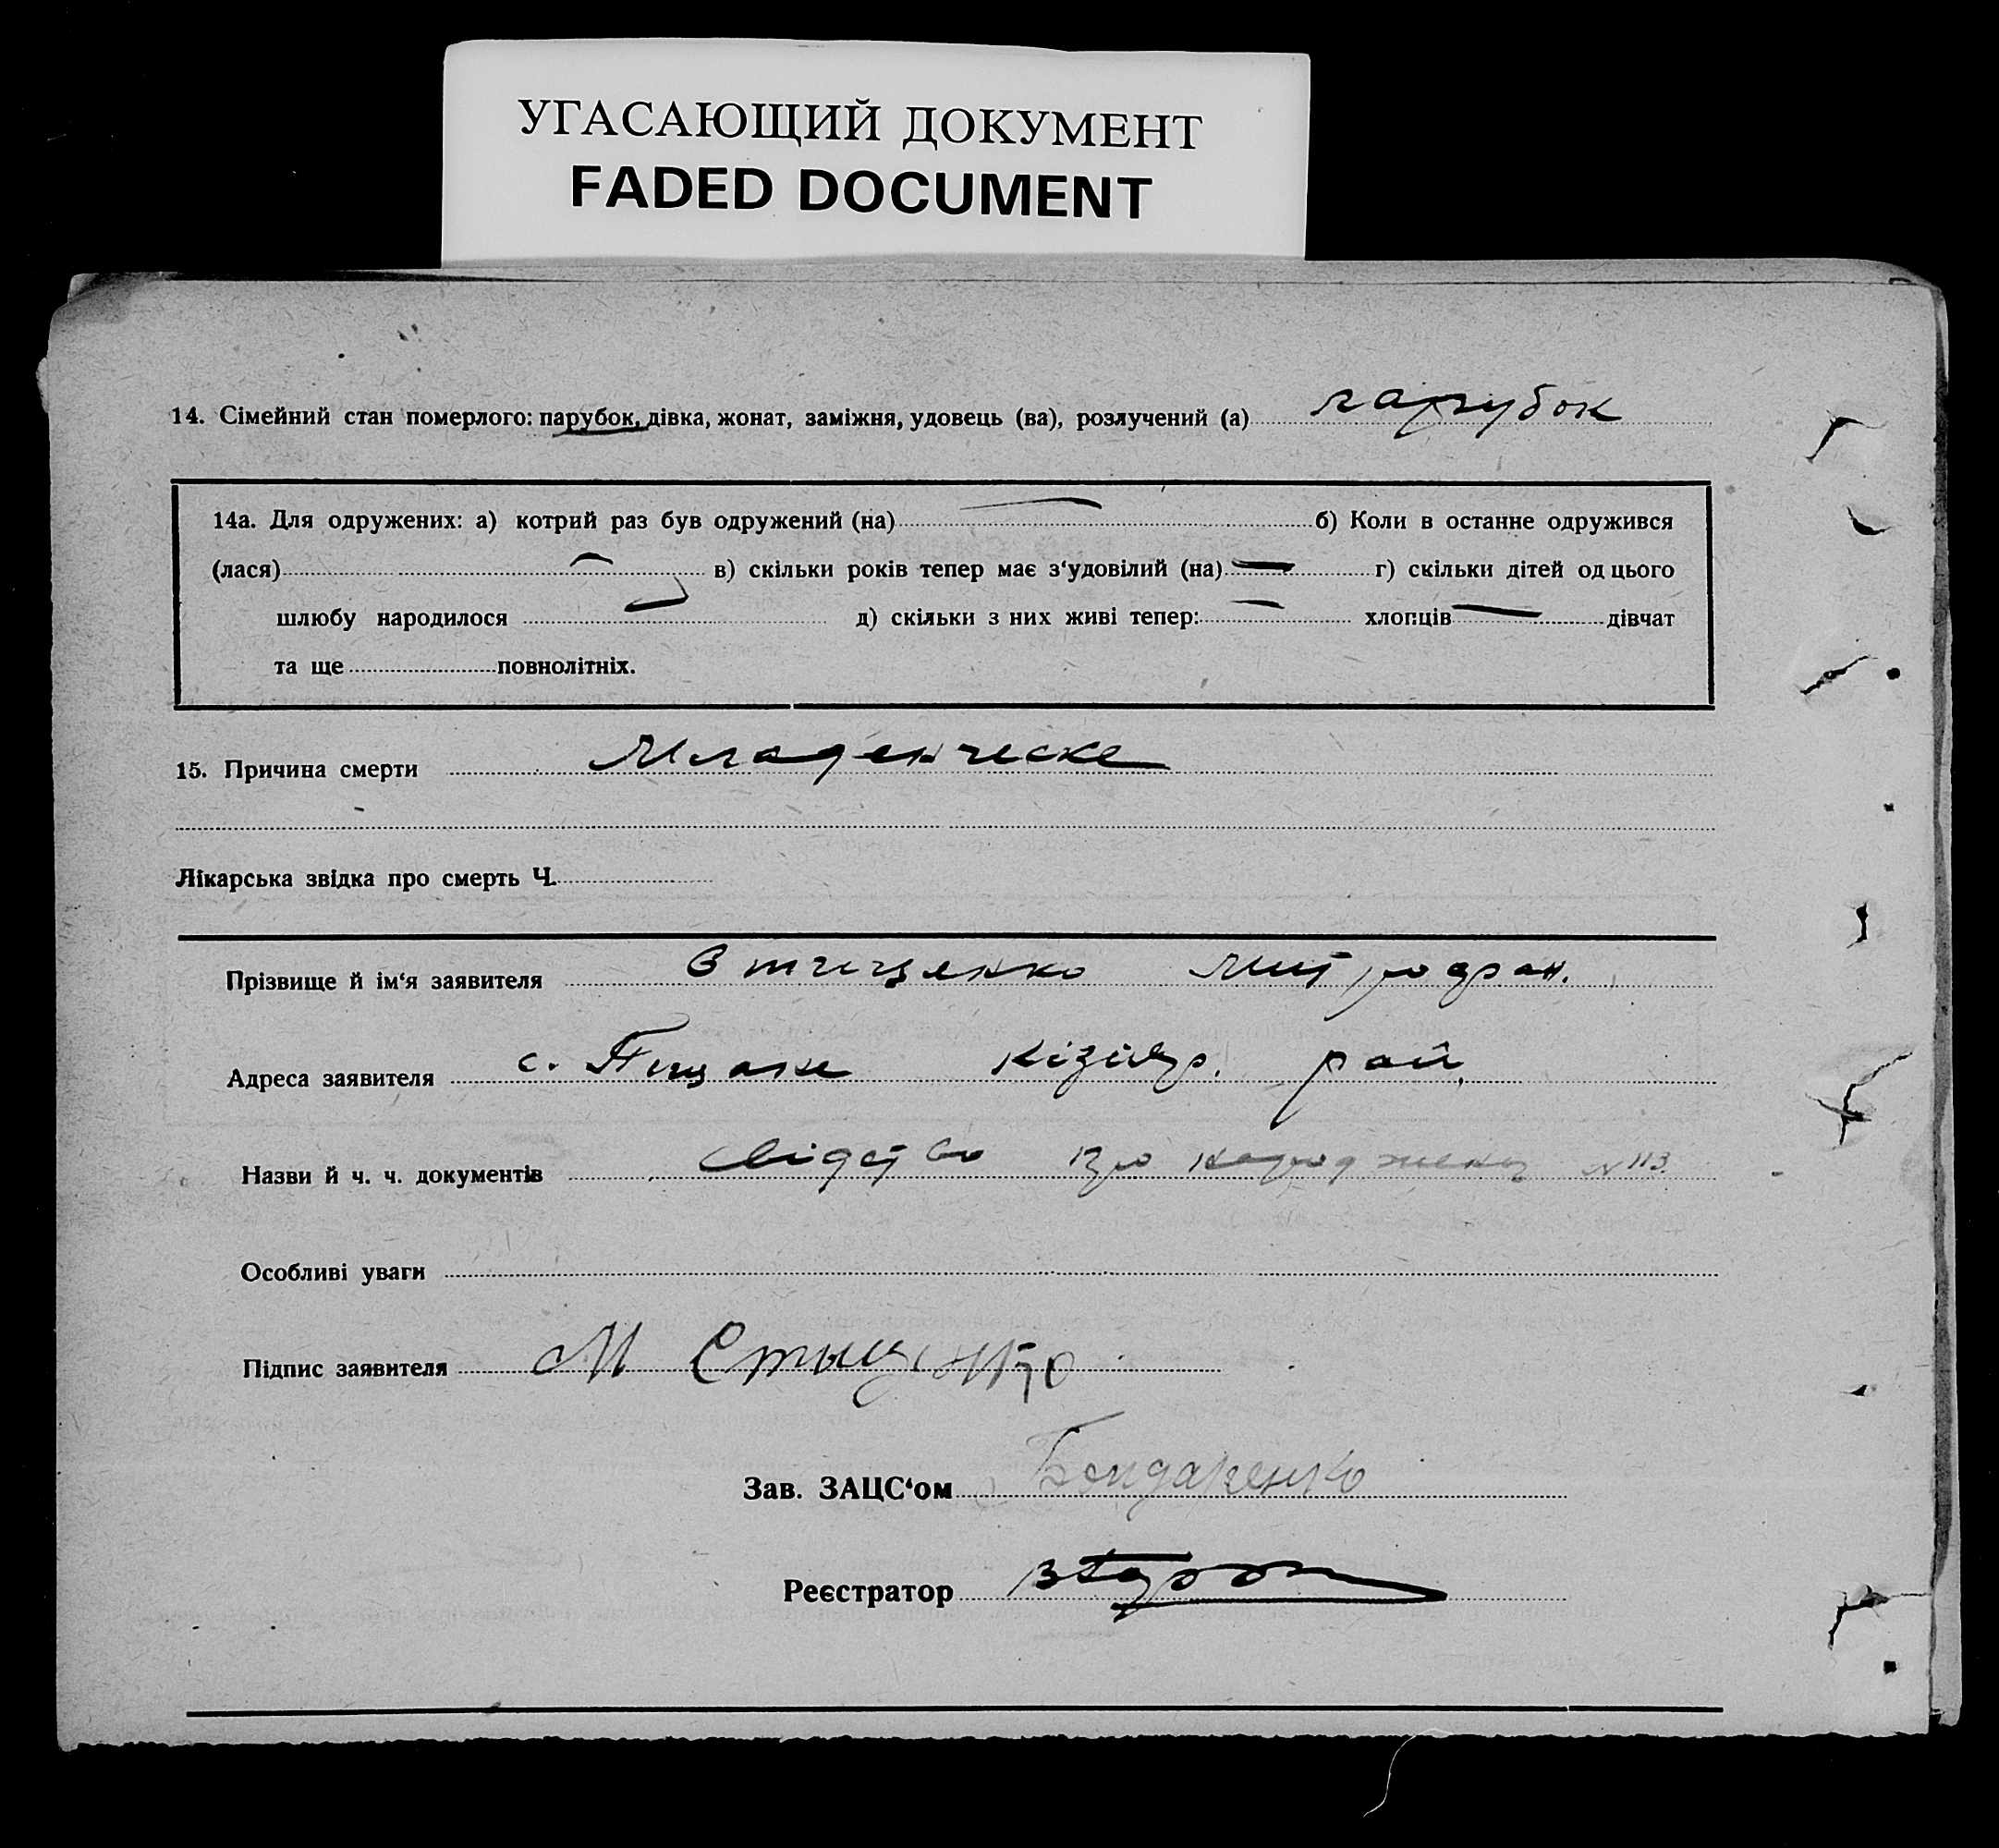 УГАСАЮЩИЙ ДОКУМЕНТ
FADED DOCUMENT
14. Сімейний стан померлого: парубок, дівка, жонат, заміжня, удовець (ва), розлучений (а) парубок
14а. Для одружених: а) котрий раз був одружений (на) б) Коли в останне одружився
(лася) в) скільки років тепер має з‘удовілий (на) г) скільки дітей од цього
шлюбу народилося д) скільки з них живі тепер: хлопців дівчат
та ще повнолітніх.
15. Причина смерти Младенческе
Лікарська звідка про смерть Ч.
Прізвище й ім‘я заявителя Стищенко Митрофан.
Адреса заявителя с. Піщане Кізіяр. рай.
Назви й ч. ч. документів Свідоство про народження №113.
Особливі уваги
Підпис заявителя М Стыщенко
Зав. ЗАЦС‘ом Бондаренко
Реєстратор